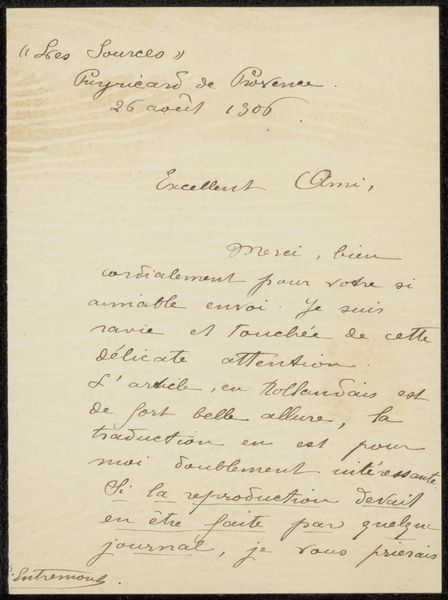 « Les Sources »
Puyricard de Provence.
26 août 1906.
Excellent Ami,
Merci, bien
cordialement pour votre si
aimable envoi. Je suis
ravie et touchée de cette
délicate attention.
L'article, en Hollandais est
de fort belle allure, la
traduction en est pour
moi doublement intéressante
Si la reproduction devait
en être faite par quelque
journal, je vous prierais
Entremont.